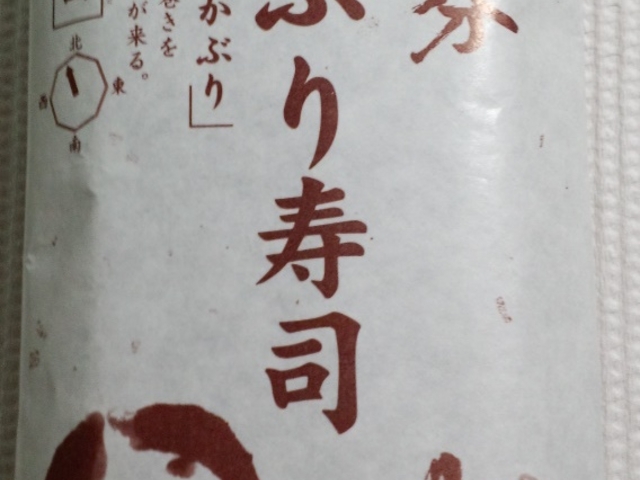 分
ぶり寿司
かぶり」
巻きを
が来る。
北
東
西
南